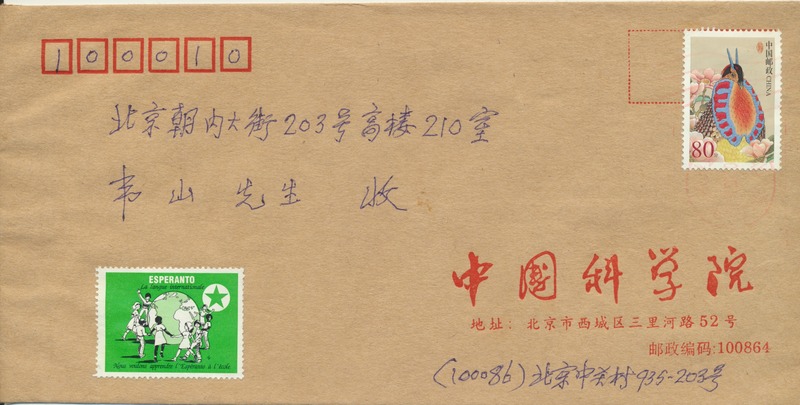 100010
中国邮政 CHINA
80
北京朝内大街203号高楼210室
韦山 先生 收
ESPERANTO
La langue internationale
Nous voulons apprendre l'Esperanto à l'école
中国科学院
地址：北京市西城区三里河路52号
邮政编码:100864
(100086)北京中关村935-203号